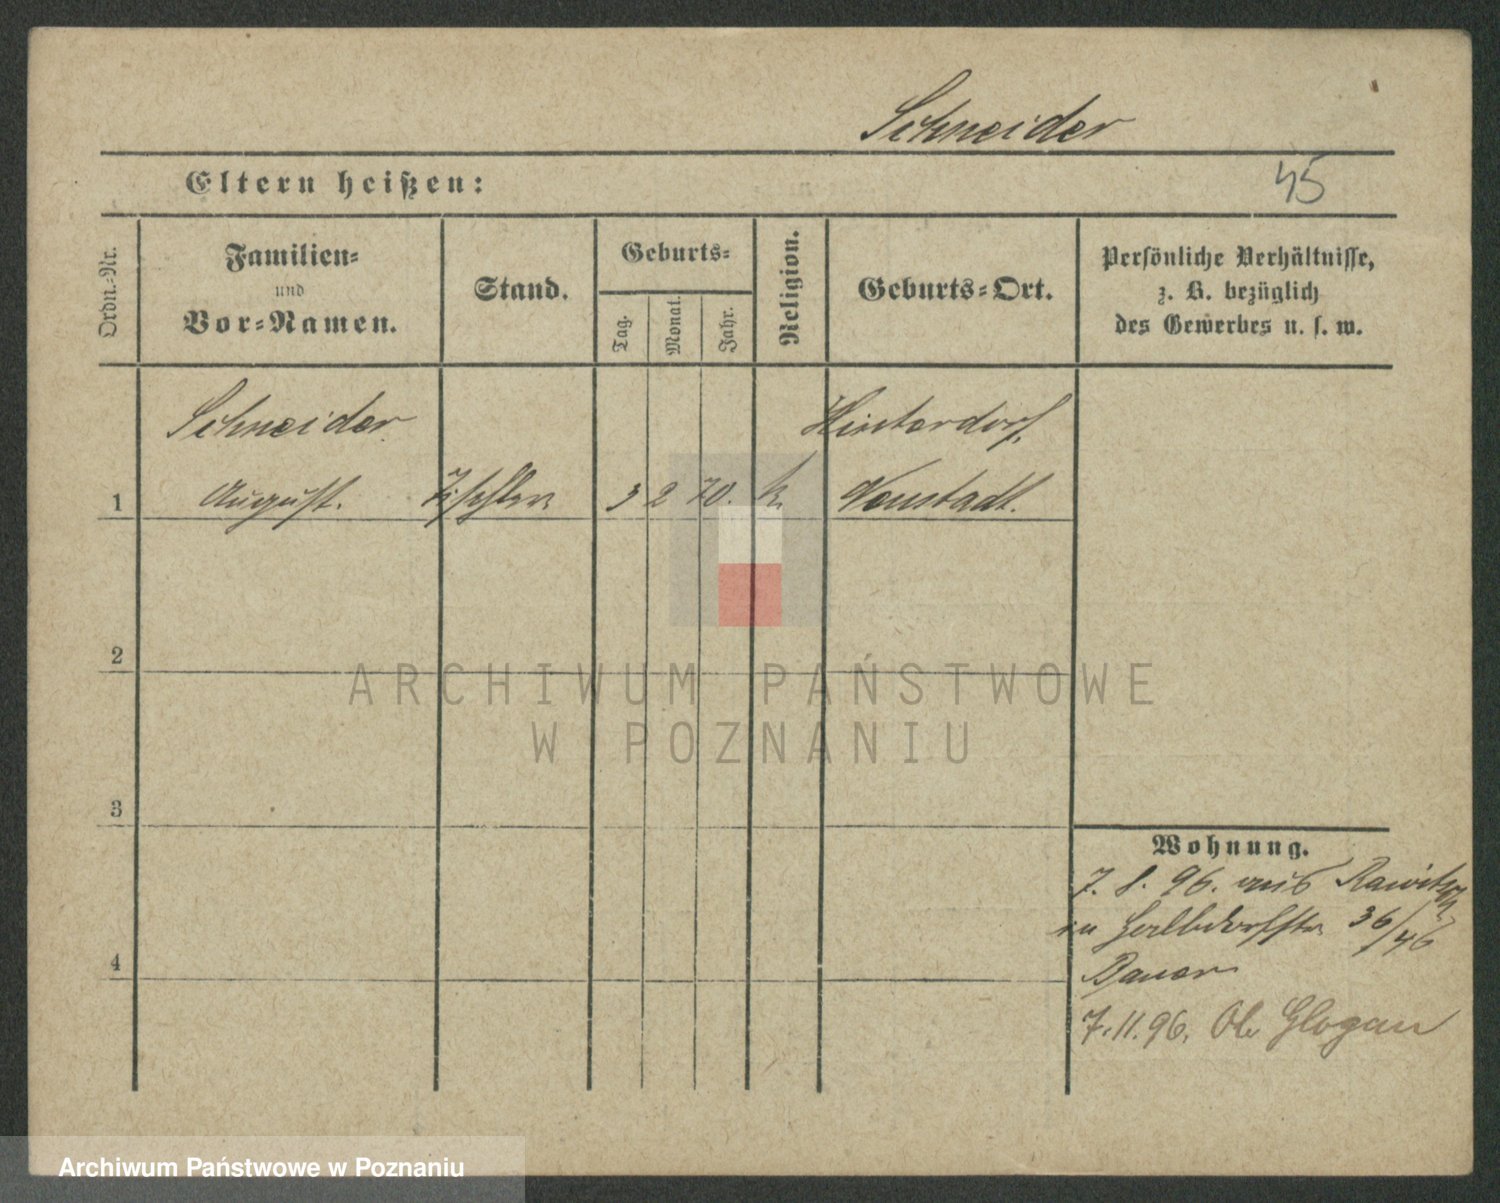 Schneider
Eltern heißen:
45
Ordn.-Nr.
Familien-
und
Vor-Namen.
Stand.
Geburts-
Tag.
Monat.
Jahr.
Religion.
Geburts-Ort.
Persönliche Verhältnisse,
z. B. bezüglich
des Gewerbes u. s. w.
Schneider
Hinterdorf,
1 August. Tischler 3 2 70. k. Neustadt.
2
ARCHIWUM PAŃSTWOWE
W POZNANIU
3
Wohnung.
7. 8. 96. aus Rawitsch
in Halbdorfstr 36/46
4
Bauer
7.11.96. Ob. Glogau
Archiwum Państwowe w Poznaniu